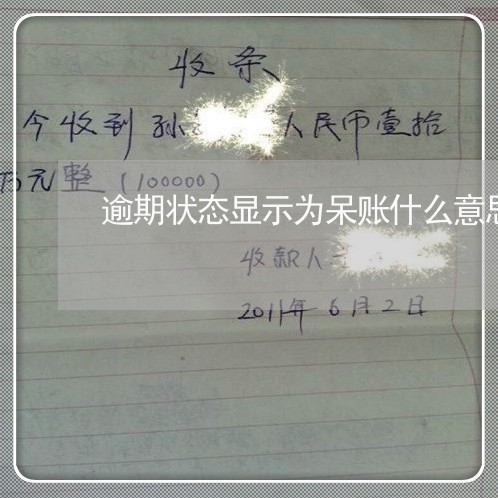 收条
今收到孙 人民币壹拾
万元整(100000)
逾期状态显示为呆账什么意思
收款人
2011年6月2日